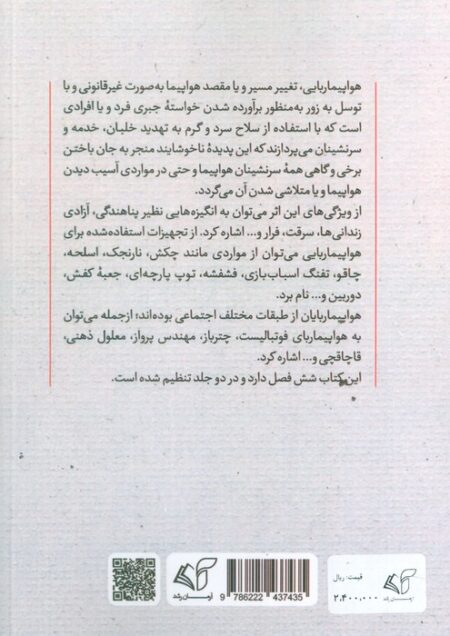 هواپیماربایی، تغییر مسیر و یا مقصد هواپیما به‌صورت غیرقانونی و با
توسل به زور به‌منظور برآورده شدن خواستهٔ جبری فرد و یا افرادی
است که با استفاده از سلاح سرد و گرم به تهدید خلبان، خدمه و
سرنشینان می‌پردازند که این پدیدهٔ ناخوشایند منجر به جان باختن
برخی و گاهی همهٔ سرنشینان هواپیما و حتی در مواردی آسیب دیدن
هواپیما و یا متلاشی شدن آن می‌گردد.
از ویژگی‌های این اثر می‌توان به انگیزه‌هایی نظیر پناهندگی، آزادی
زندانی‌ها، سرقت، فرار و... اشاره کرد. از تجهیزات استفاده‌شده برای
هواپیماربایی می‌توان از مواردی مانند چکش، نارنجک، اسلحه،
چاقو، تفنگ اسباب‌بازی، فشفشه، توپ پارچه‌ای، جعبهٔ کفش،
دوربین و... نام برد.
هواپیماربایان از طبقات مختلف اجتماعی بوده‌اند؛ ازجمله می‌توان
به هواپیماربای فوتبالیست، چترباز، مهندس پرواز، معلول ذهنی،
قاچاقچی و... اشاره کرد.
این کتاب شش فصل دارد و در دو جلد تنظیم شده است.
آرمان رشد
9 786222 437435
آرمان رشد
قیمت: ریال
۲،۴۰۰،۰۰۰